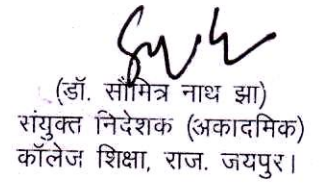 (डॉ. सौमित्र नाथ झा)
संयुक्त निदेशक (अकादमिक)
कॉलेज शिक्षा, राज. जयपुर।